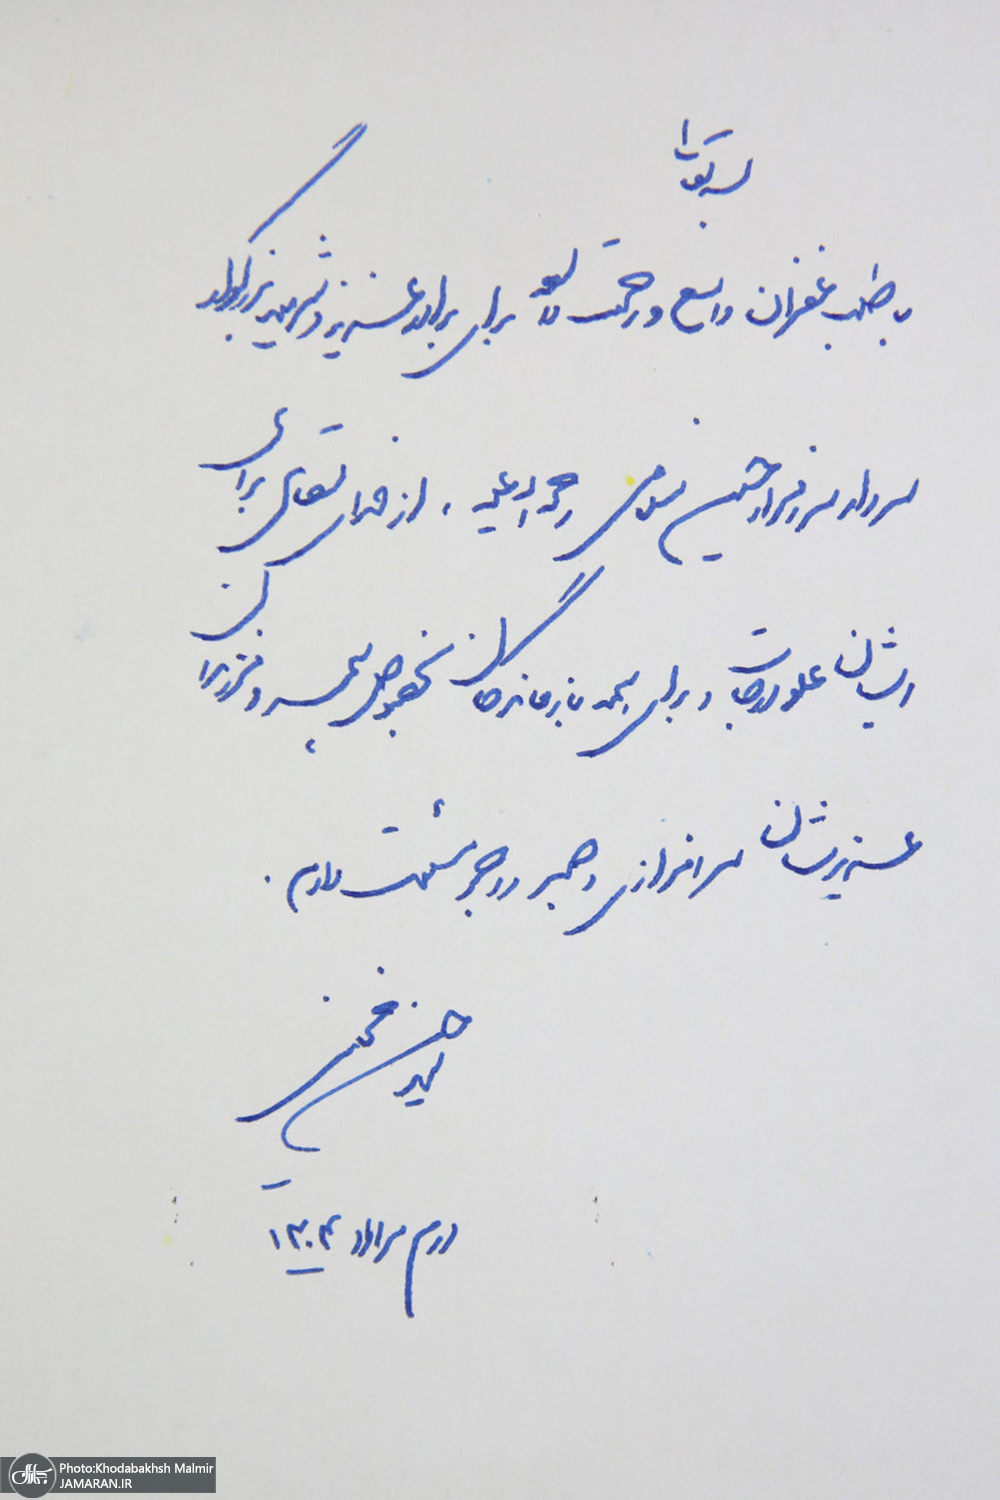 بسمه تعالی
با طلب غفران واسع و رحمت واسعه برای برادر عزیز و شهید بزرگوار
سردار سرفراز حسین سلامی رحمه الله علیه، از خدای متعال برای
ایشان علو درجات و برای همه بازماندگان بخصوص همسر و فرزندان
عزیزشان سرافرازی و صبر و اجر مسئلت دارم.
سید حسن خمینی
دوم مرداد ۱۴۰۴
Photo:Khodabakhsh Malmir
JAMARAN.IR